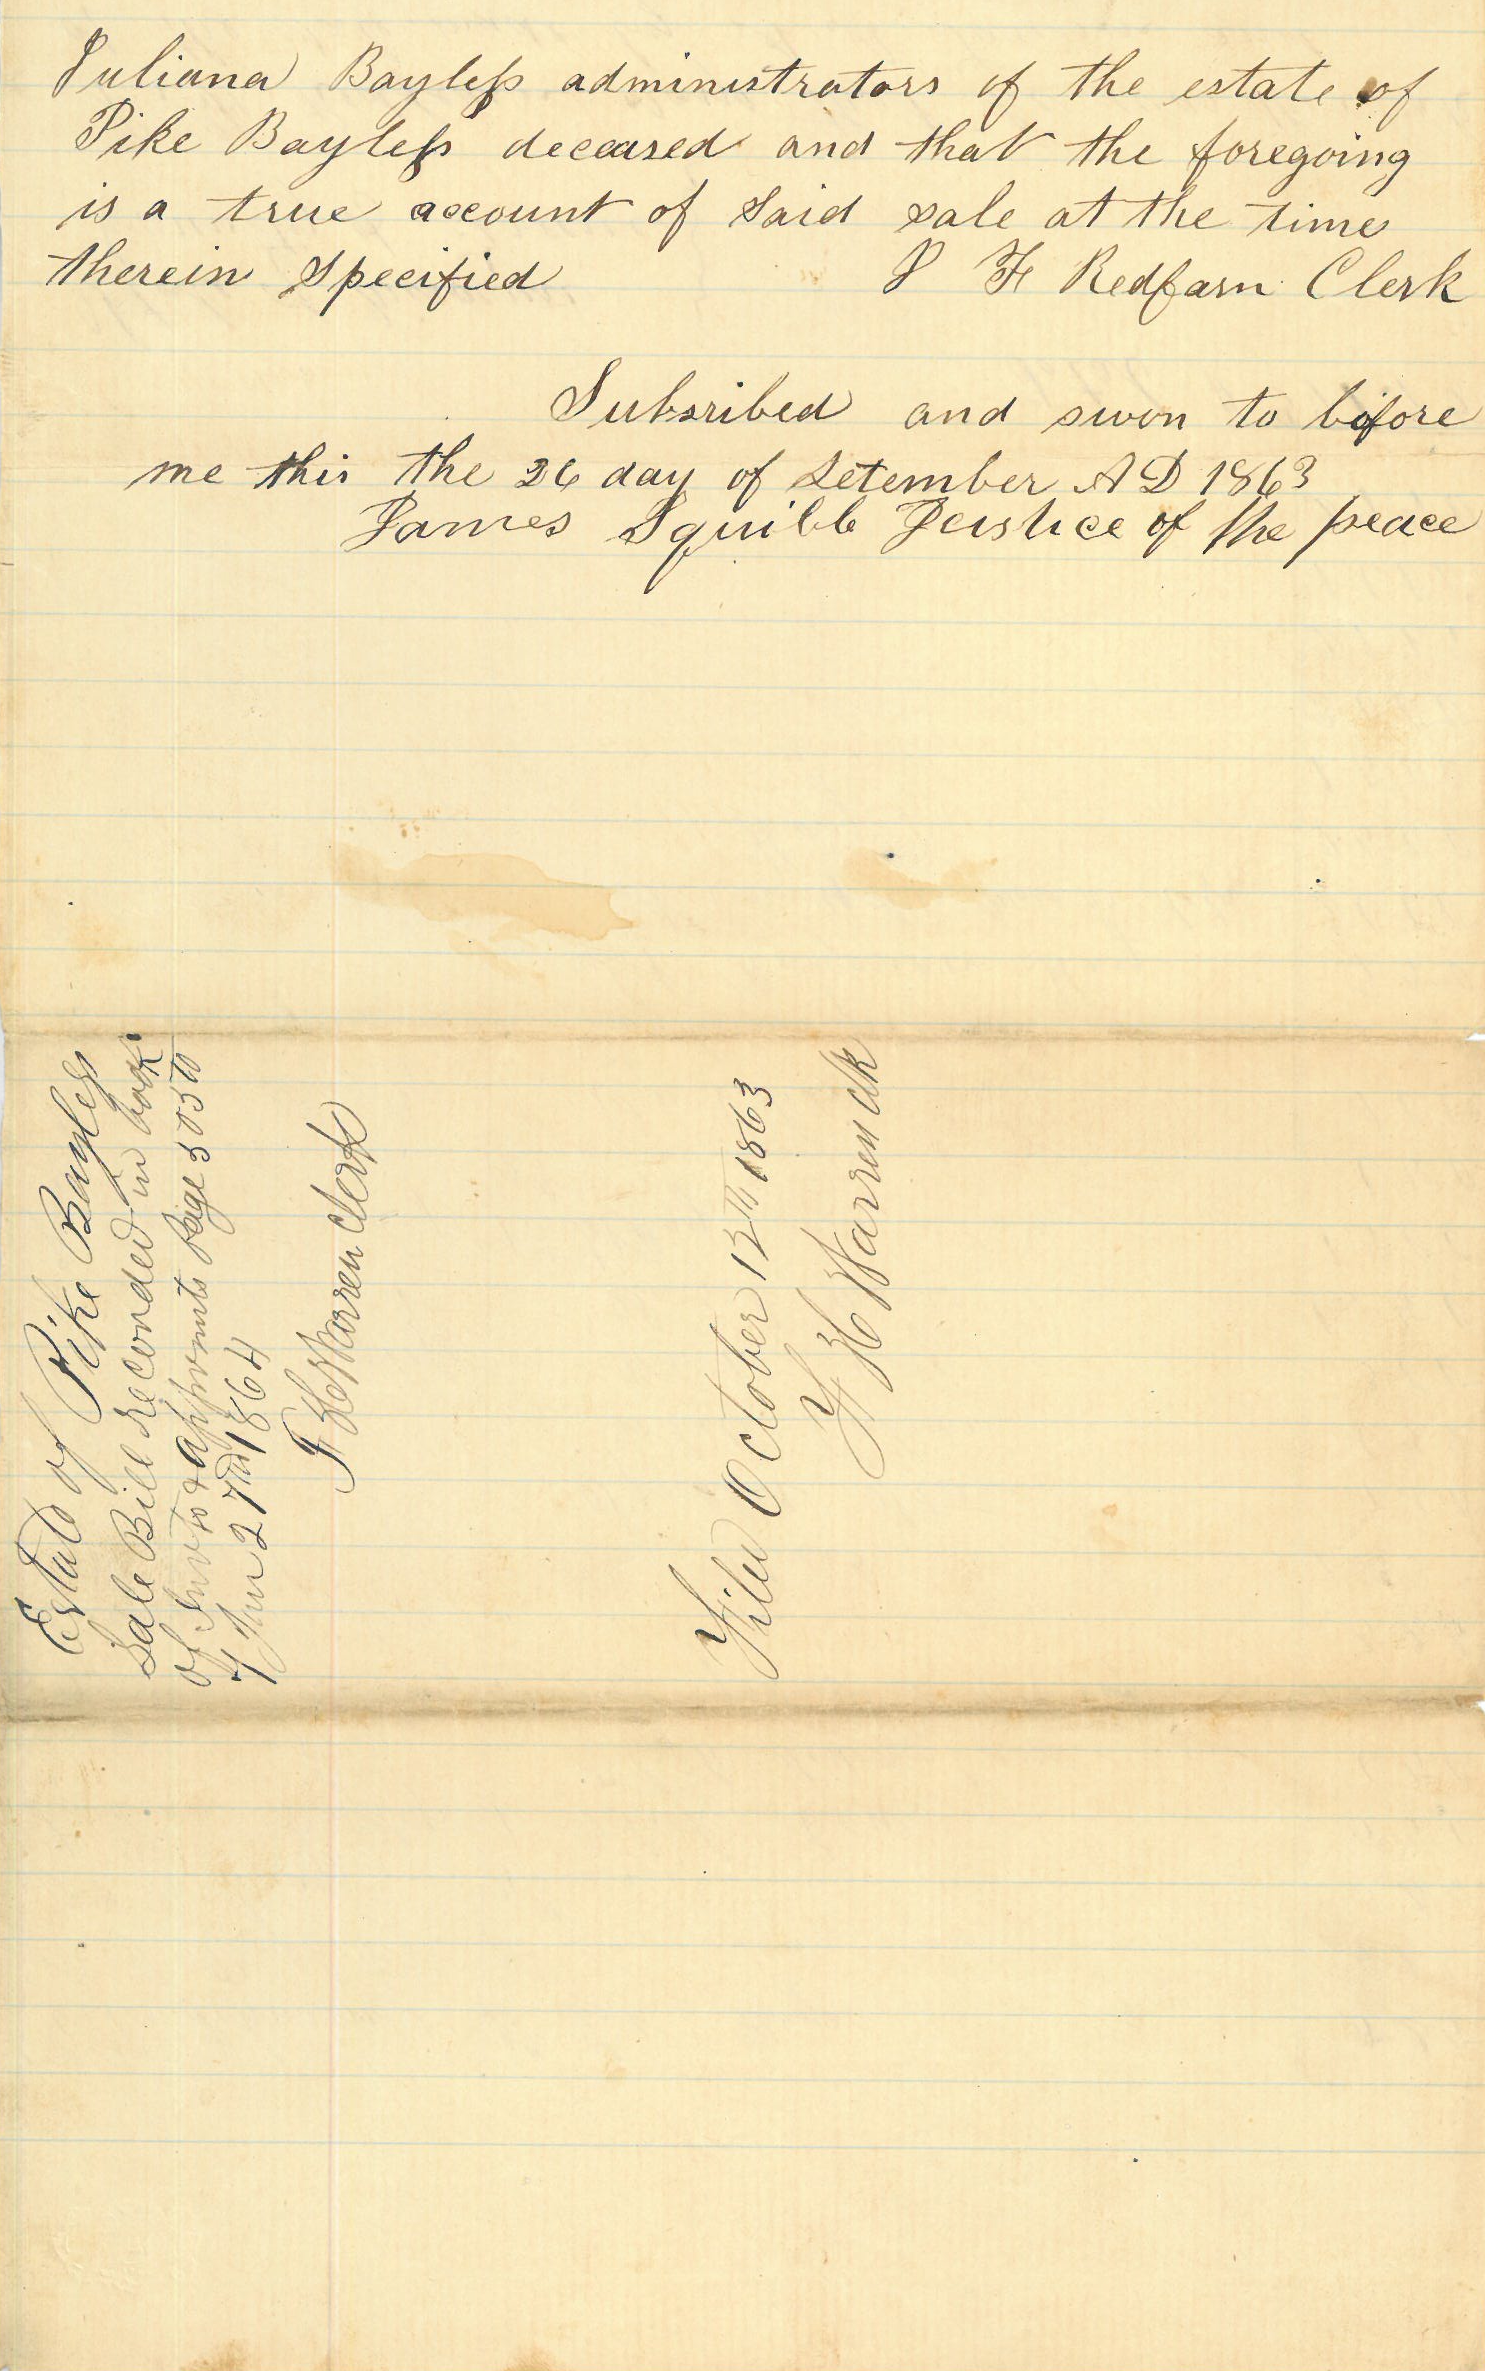 Juliana Bayless administrators of the estate of
Pike Bayless deceased and that the foregoing
is a true account of said sale at the time
therein specified J F Redfarn Clerk
Subsribed and swon to before
me this the 26 day of Setember A D 1863
James Squibb Justice of the peace
Estate of Pike Bayless
Sale Bill recorded in book
of Invto & apprmts Page 305 to
7 Jan 27th 1864
F H Warren Clerk
Filed October 12th 1863
F H Warren clk